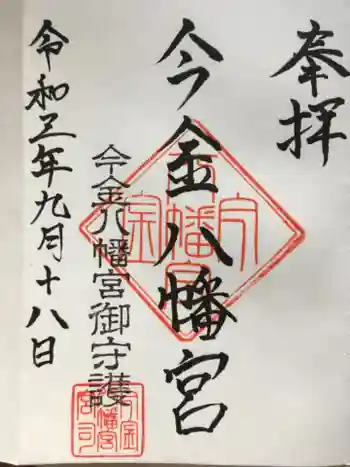 奉拝
今金八幡宮
今金八幡宮御守護
令和三年九月十八日
今金
八幡宮
宮司